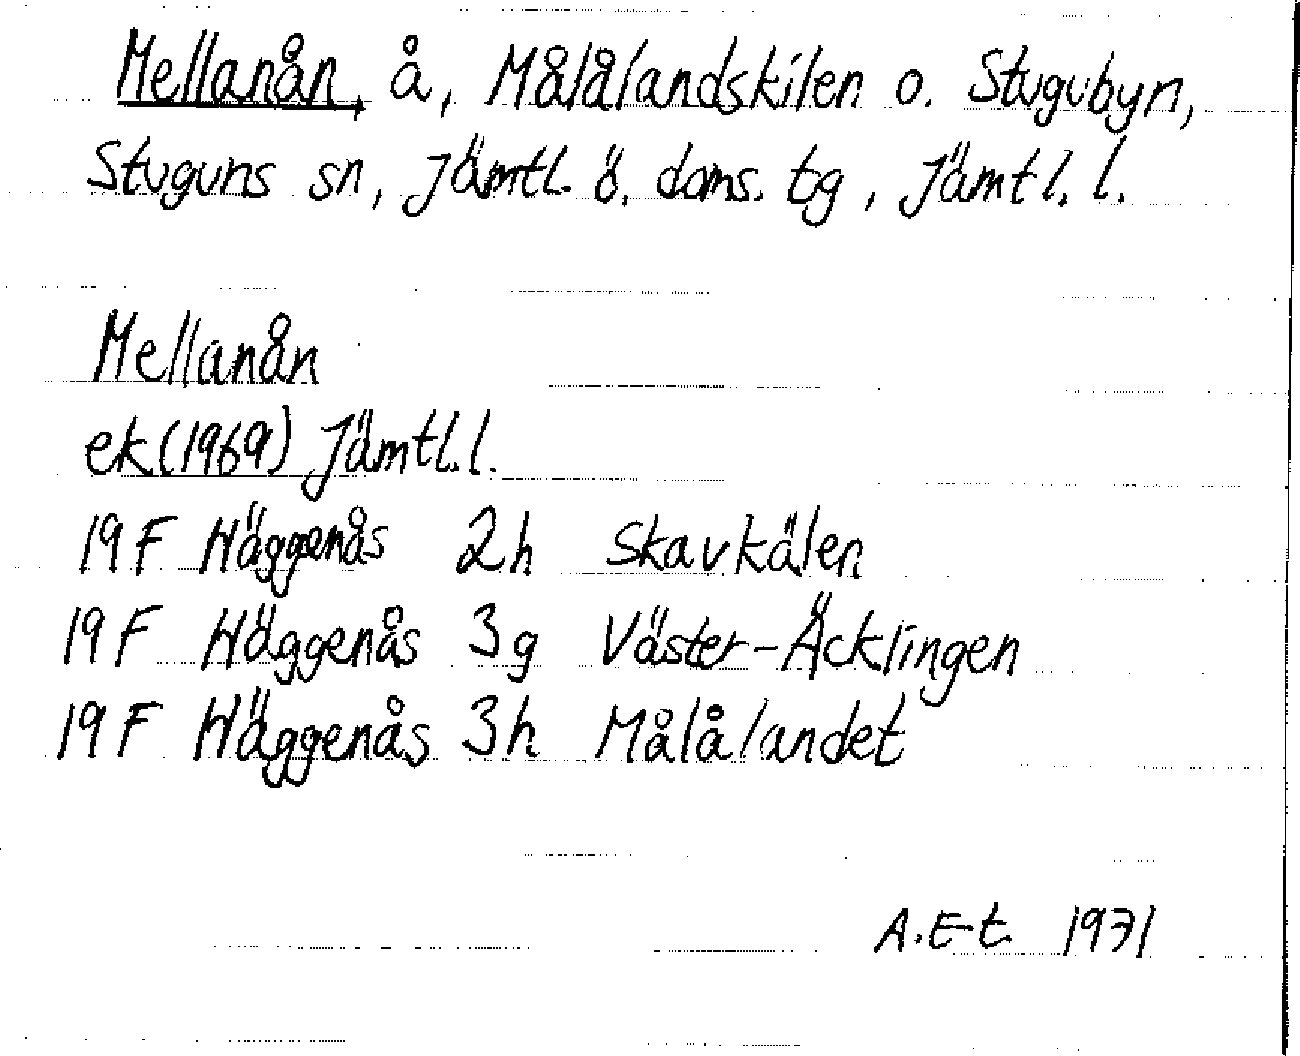 Mellanån, å, Målålandskilen o. Stugubyn,
Stuguns sn, Jämtl. ö. doms. tg, Jämtl. l.
Mellanån
ek (1969) Jämtl. l.
19 F Häggenås 2h Skavkälen
19 F Häggenås 3g Väster-Äcklingen
19 F Häggenås 3h Målålandet
A. E-t. 1971